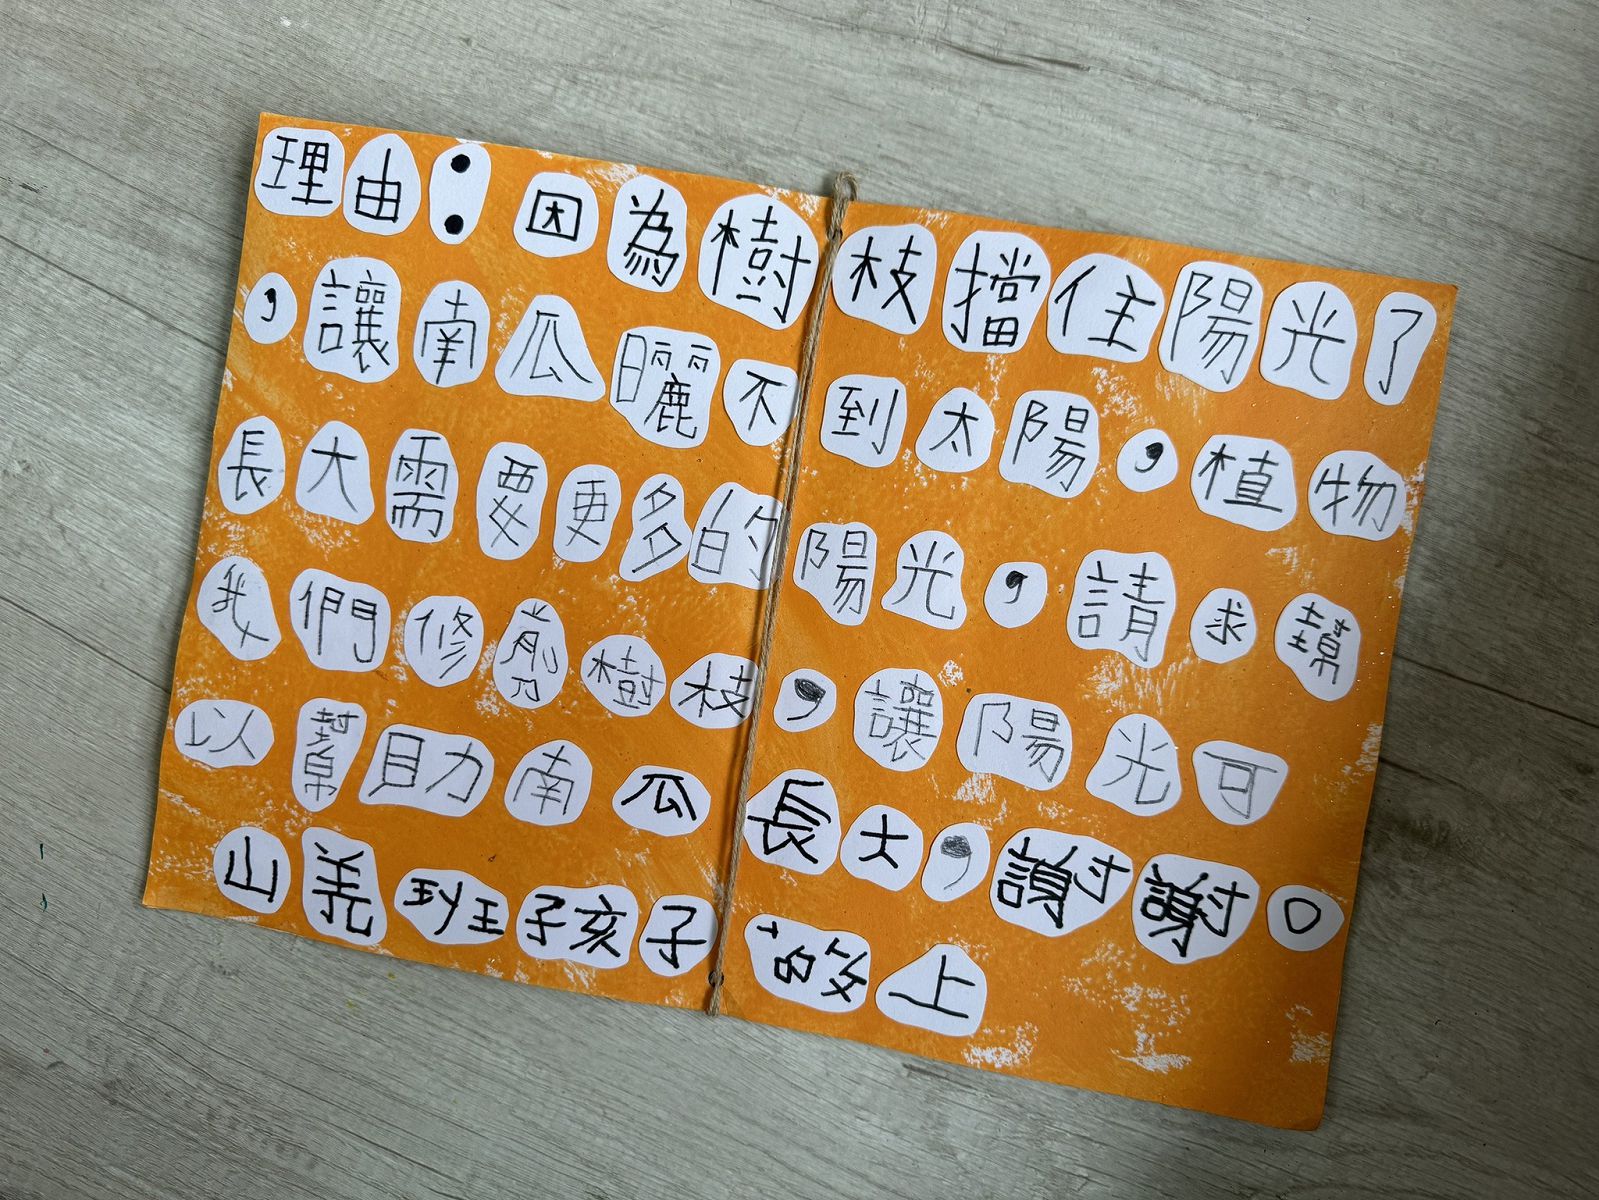 理由:因為樹枝擋住陽光了
,讓南瓜曬不到太陽,植物
長大需要更多的陽光,請求幫
我們修剪樹枝,讓陽光可
以幫助南瓜長大,謝謝。
山羌班孩子敬上